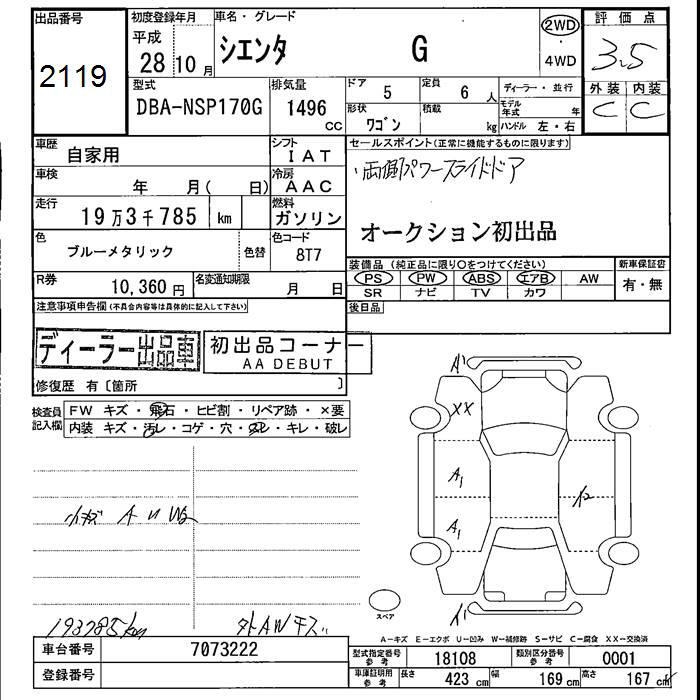 出品番号
2119
初度登録年月
平成
28 10 月
車名・グレード
シエンタ G
2WD
4WD
評価点
3.5
外装 内装
C C
型式
DBA-NSP170G
排気量
1496 cc
ドア 5
定員 6 人
形状 ワゴン
積載 kg
ディーラー・並行
モデル年式 年
ハンドル 左・右
車歴 自家用
シフト IAT
車検 年 月( 日)
冷房 AAC
走行 19万3千785 km
燃料 ガソリン
色 ブルーメタリック 色替
色コード 8T7
R券 10,360円
名変通知期限 月 日
セールスポイント(正常に機能するものに限ります)
・両側パワースライドドア
オークション初出品
装備品(純正品に限り○をつけてください)
PS PW ABS エアB AW
SR ナビ TV カワ
新車保証書
有・無
後日品
注意事項申告欄(不具合内容等は具体的に記入して下さい)
ディーラー出品車
初出品コーナー
AA DEBUT
修復歴 有〔箇所 〕
検査員記入欄
FW キズ・飛石・ヒビ割・リペア跡・×要
内装 キズ・汚レ・コゲ・穴・スレ・キレ・破レ
小キズ A U W2
193785km
外AWキズ
A'
XX
A1
A1
スペア
A-キズ E-エクボ U-凹み W-補修跡 S-サビ C-腐食 XX-交換済
車台番号 7073222
登録番号
型式指定番号 参考 18108
類別区分番号 参考 0001
車庫証明用 参考 長さ 423 cm 幅 169 cm 高さ 167 cm